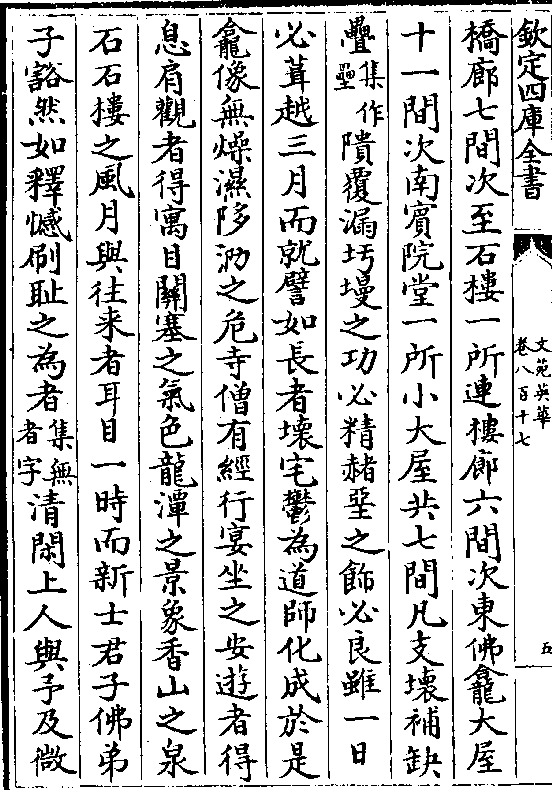 欽定四庫全書
文苑英華
卷八百十七
五
橋廊七間次至石樓一所連樓廊六間次東佛龕大屋
十一間次南賓院堂一所小大屋共七間凡支壞補缺
疊集作壘隤覆漏圬墁之功必精赭堊之飾必良雖一日
必葺越三月而就譬如長者壞宅鬱為道師化成於是
龕像無燥濕陊泐之危寺僧有經行宴坐之安遊者得
息肩觀者得寓目關塞之氣色龍潭之景象香山之泉
石石樓之風月與往来者耳目一時而新士君子佛弟
子豁然如釋憾刷恥之為者集無者字清閑上人與予及微